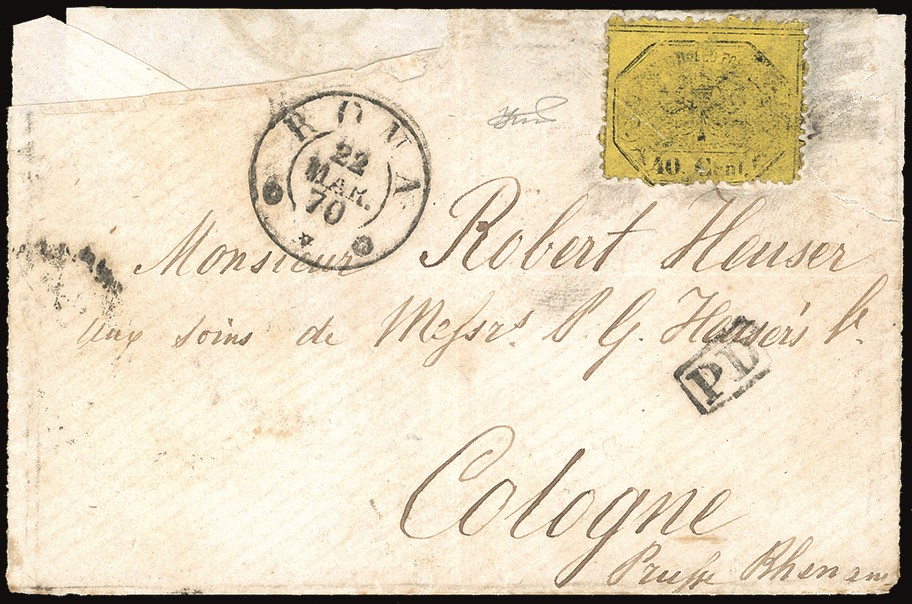 40. Cent.
ROMA
22
MAR.
70
Monsieur Robert Heuser
aux soins de Messrs P. G. Heuser's
PD
Cologne
Prusse Rhenane